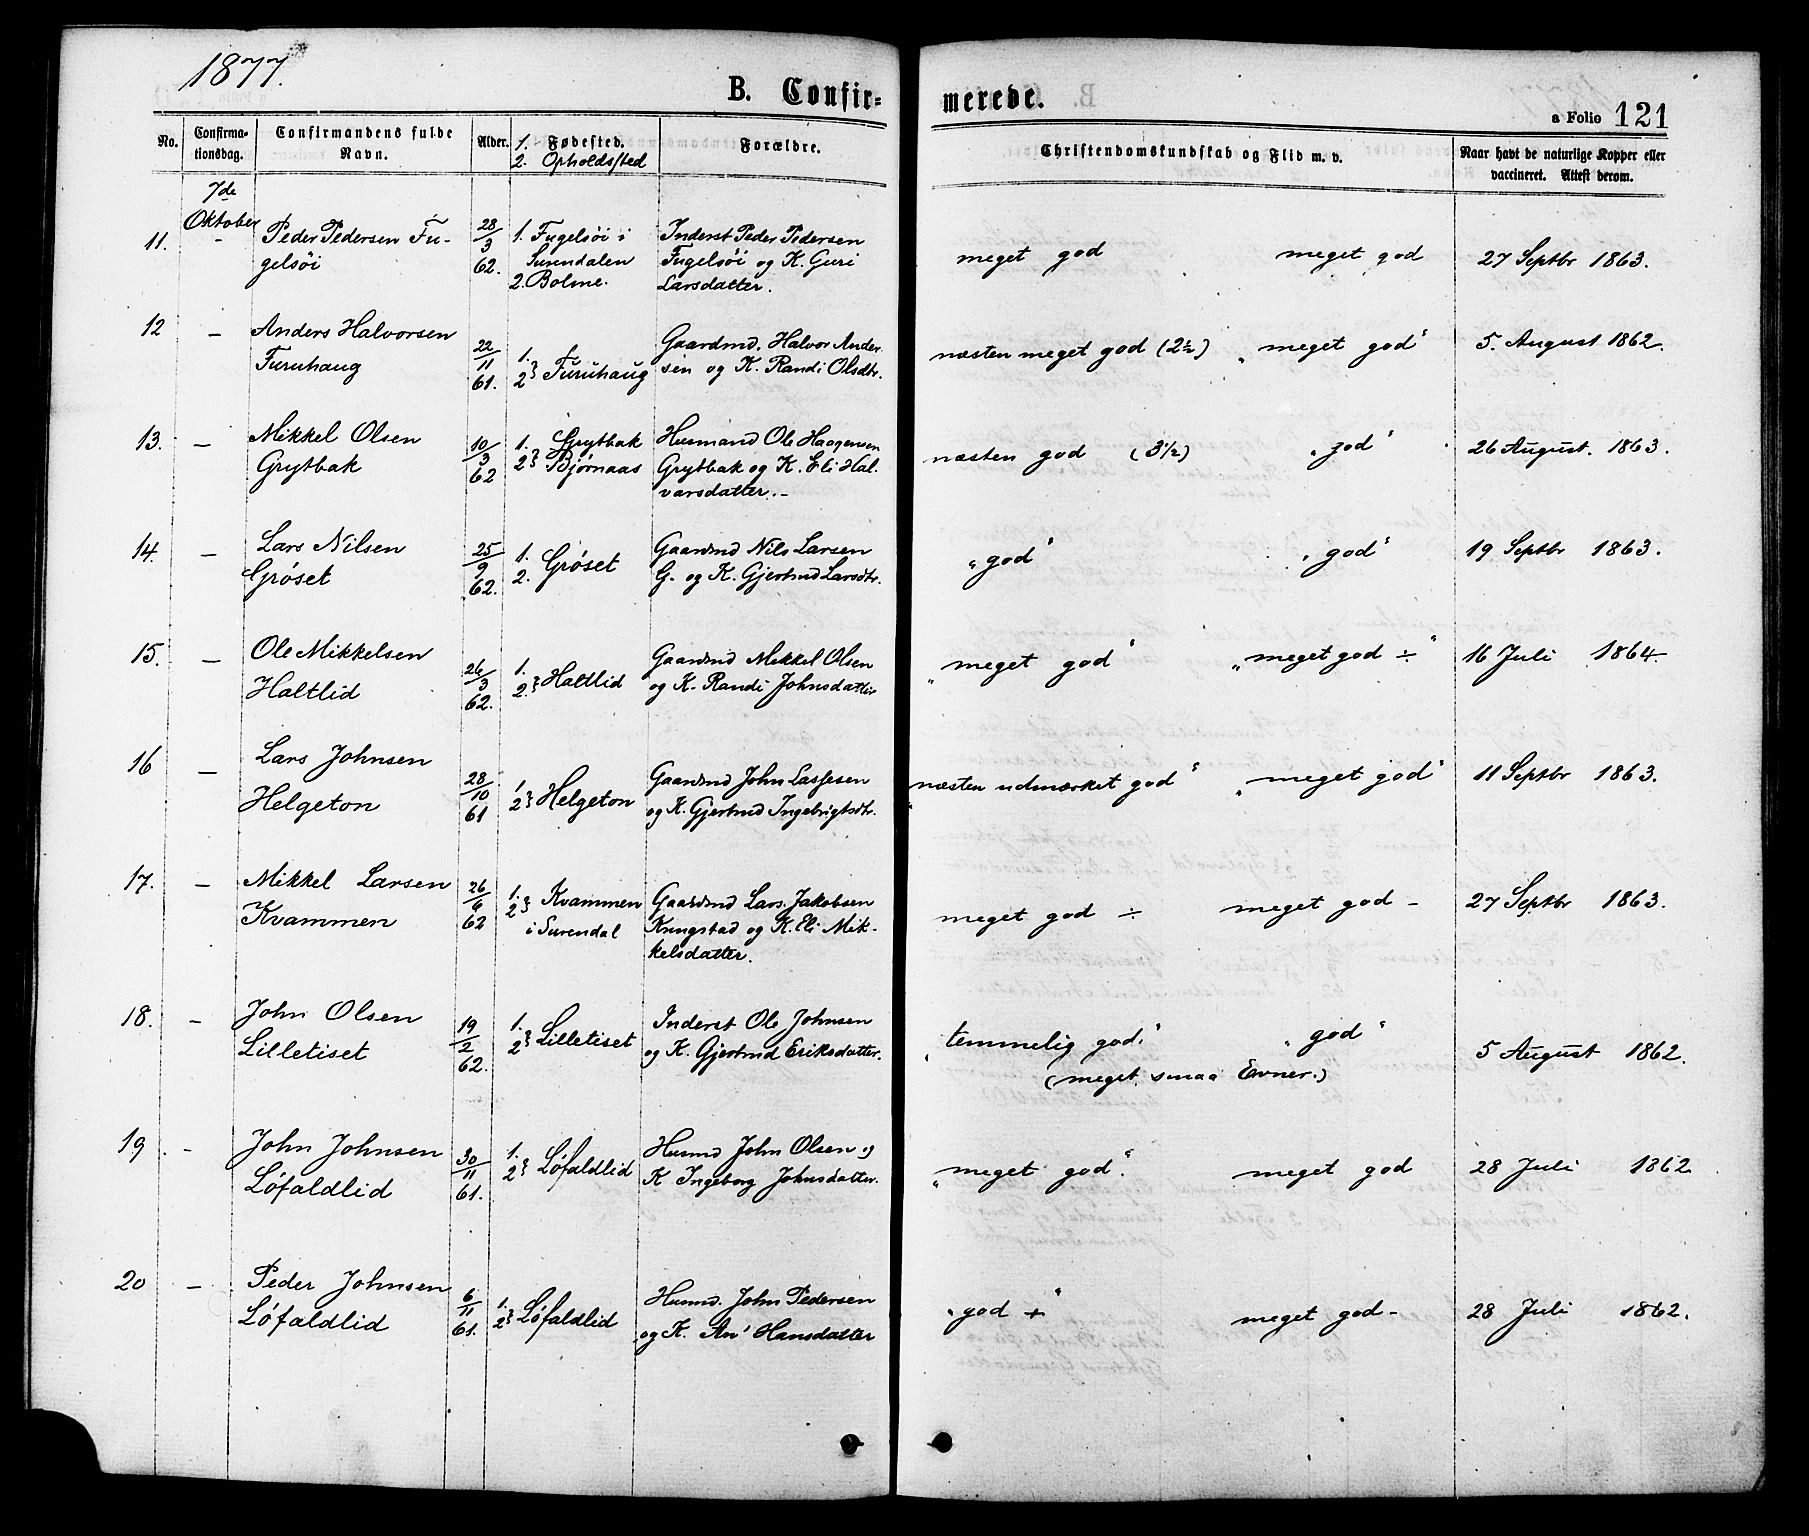 1877.
B. Confir-
merede.
a Folio 121
No.
Confirma-
tionsdag.
Confirmandens fulde
Navn.
Alder.
1. Fødested.
2. Opholdssted
Forældre.
Christendomskundskab og Flid m. v.
Naar havt de naturlige Kopper eller
vaccineret. Attest derom.
7de
Oktober
11. - Peder Pedersen Fu- 28/3 1. Fugelsöi i Inderst Peder Pedersen
gelsöi 62. Surendalen Fugelsöi og K. Guri
2. Bolme. Larsdatter.
meget god meget god 27 Septbr 1863.
12 - Anders Halvorsen 22/11 1. Gaardmd. Halvor Ander
Furuhaug 61. 2 } Furuhaug sen og K. Randi Olsdtr.
næsten meget god (2½) „meget god“ 5. August 1862.
13. - Mikkel Olsen 10/3 1. Grytbak Husmand Ole Haagensen
Grytbak 62 2 } Bjørnaas Grytbak og K. Eli Hal-
varsdatter.-
næsten god (3½) „god“ 26 August. 1863.
14. - Lars Nilsen 25/9 1. Gaardmd Nils Larsen
Gröset 62. 2. Gröset G. og K. Gjertrud Larsdtr.
„god“ „god“ 19 Septbr 1863.
15. - Ole Mikkelsen 26/3 1. Gaardmd Mikkel Olsen
Haltlid 62. 2. } Haltlid og K. Randi Johnsdatter
„meget god“ „meget god ÷“ 16 Juli 1864.
16 - Lars Johnsen 28/10 1. Gaardmd John Lassesen
Helgeton 61 2 } Helgeton og K. Gjertrud Ingebrigtsdtr.
„næsten udmærket god“ „meget god“ 11 Septbr 1863.
17. - Mikkel Larsen 26/6 1. Kvammen Gaardmd Lars Jakobsen
Kvammen 62 2 } i Surendal og K. Eli Mik-
kelsdatter.
meget god ÷ meget god - 27 Septbr 1863.
18. - John Olsen 19/2 1. Inderst Ole Johnsen
Lilletiset 62. 2 } Lilletiset og K. Gjertrud Eriksdatter.
„temmelig god“ „god“ 5 August 1862.
(meget smaa Evner.)
19. - John Johnsen 30/11 1. Husmd John Olsen og
Löfaldlid 61. 2 } Löfaldlid K Ingeborg Johnsdatter.
„meget god“. meget god 28 Juli 1862
20 - Peder Johnsen 6/11 1. Husmd. John Pedersen
Löfaldlid 61. 2 } Löfaldlid og K. An' Hansdatter
„god +“ meget god - 28 Juli 1862.